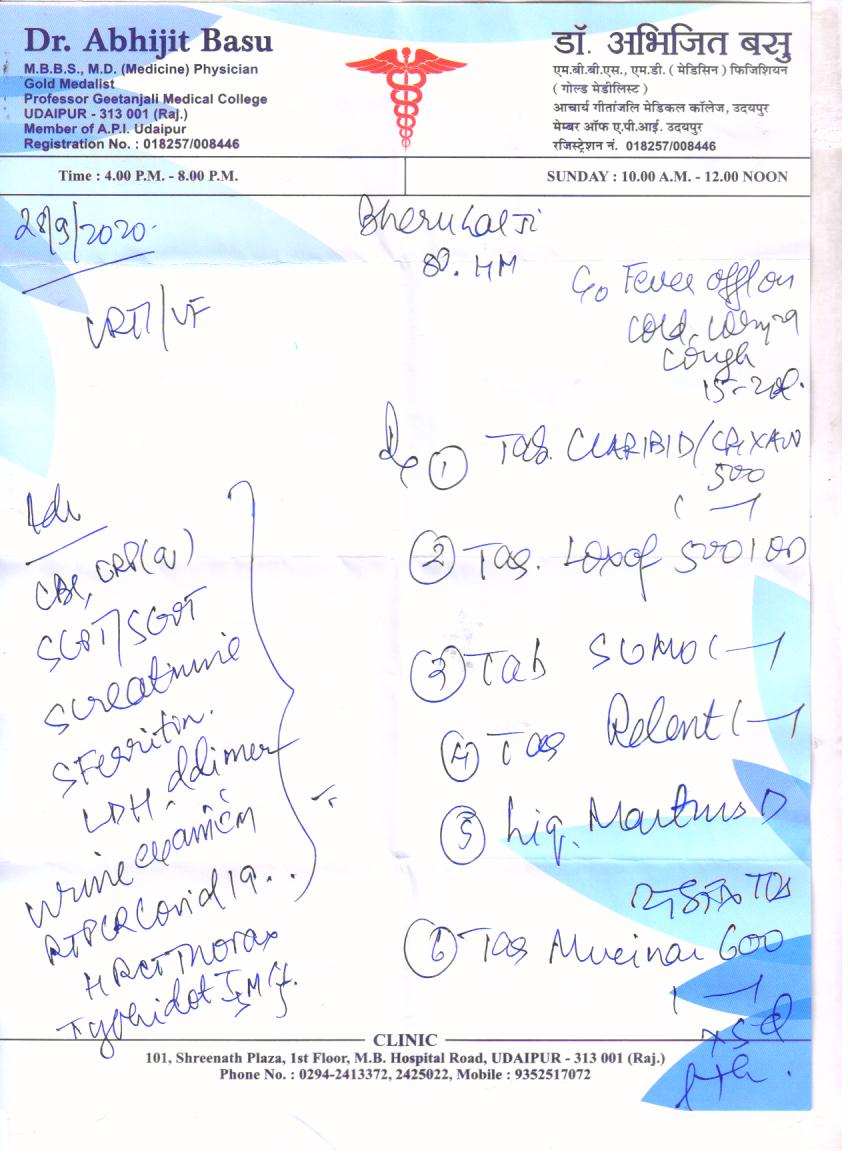 Dr. Abhijit Basu
M.B.B.S., M.D. (Medicine) Physician
Gold Medalist
Professor Geetanjali Medical College
UDAIPUR - 313 001 (Raj.)
Member of A.P.I. Udaipur
Registration No. : 018257/008446
डॉ. अभिजित बसु
एम.बी.बी.एस., एम.डी. ( मेडिसिन ) फिजिशियन
( गोल्ड मेडीलिस्ट )
आचार्य गीतांजलि मेडिकल कॉलेज, उदयपुर
मेम्बर ऑफ ए.पी.आई. उदयपुर
रजिस्ट्रेशन नं. 018257/008446
Time : 4.00 P.M. - 8.00 P.M.
SUNDAY : 10.00 A.M. - 12.00 NOON
28/9/2020
Bherulal Ji
80. HM
Fever off/on
cold,
cough
15-20d.
URTI/VF
① Tab. CLARIBID/
500
1-1
② Tab. Loxof 500 1 OD
③ Tab SUMO 1-1
④ Tab Relent 1-1
⑤ Liq. D
TDS
⑥ Tab Mucinac 600
1-1
x 5d
Adv
CBC, CRP(Q)
SGPT/SGOT
S creatinine
S Ferritin.
LDH ddimer
urine examⁿ
RTPCR Covid 19.
HRCT Thorax
Typhidot IgM
CLINIC
101, Shreenath Plaza, 1st Floor, M.B. Hospital Road, UDAIPUR - 313 001 (Raj.)
Phone No. : 0294-2413372, 2425022, Mobile : 9352517072